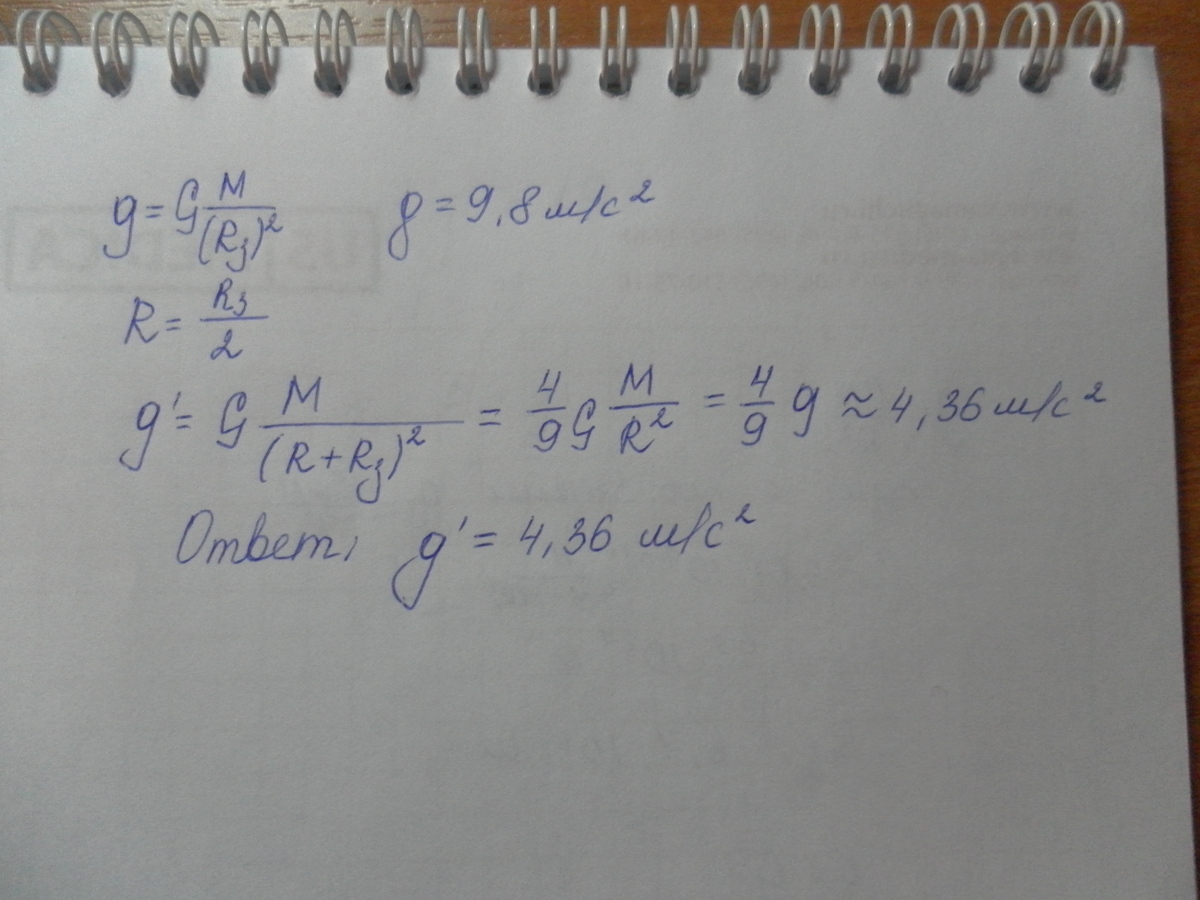 g = G M/(Rз)² g = 9,8 м/с²
R = Rз/2
g' = G M/(R+Rз)² = 4/9 G M/R² = 4/9 g ≈ 4,36 м/с²
Ответ, g' = 4,36 м/с²